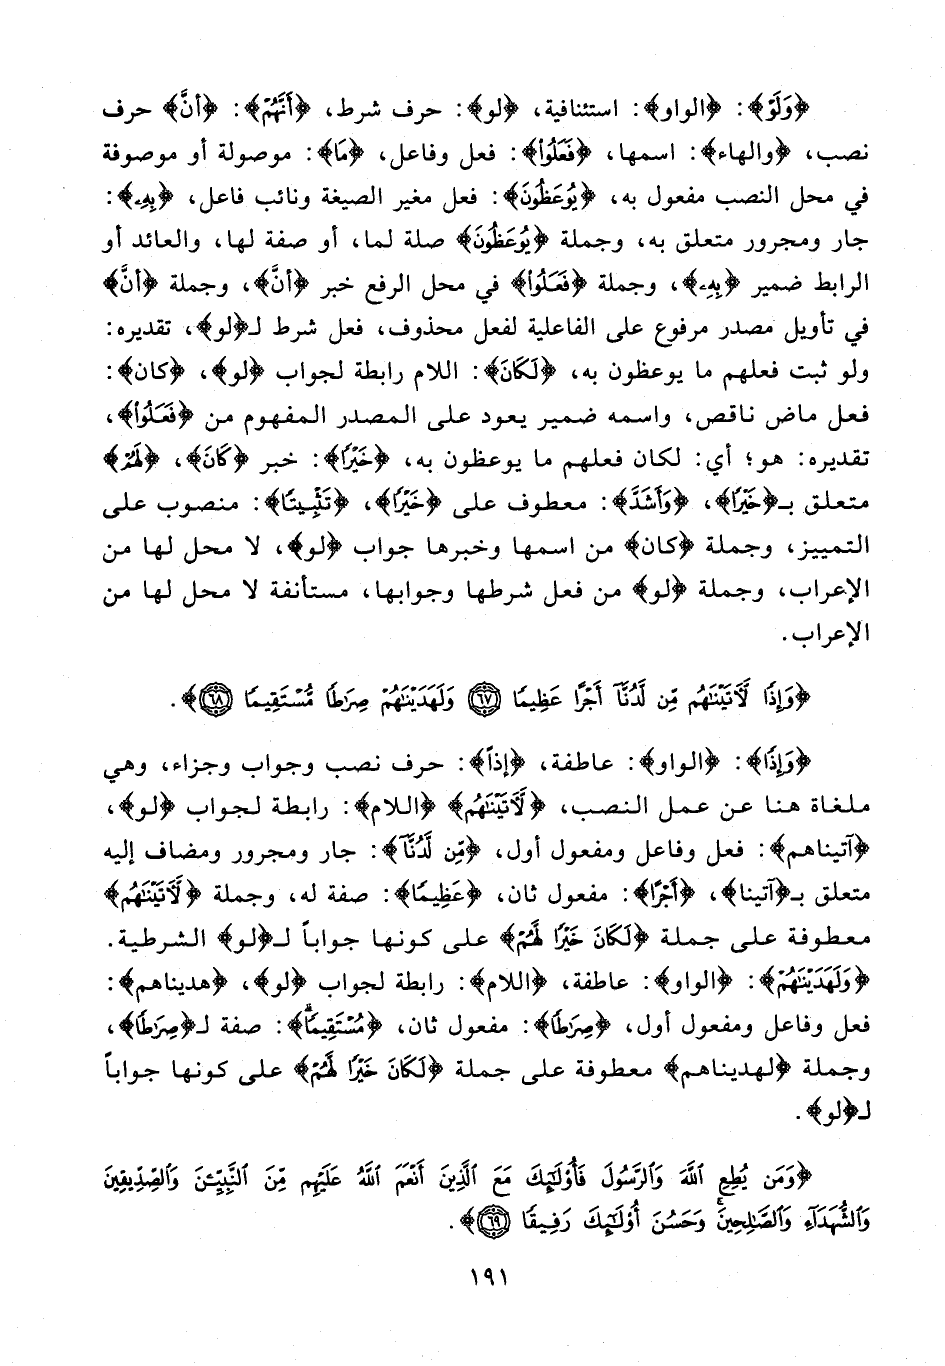 ﴿وَلَوْ﴾: ﴿الواو﴾: استئنافية، ﴿لو﴾: حرف شرط، ﴿أَنَّهُمْ﴾: ﴿أنَّ﴾ حرف
نصب، ﴿والهاء﴾: اسمها، ﴿فَعَلُوا۟﴾: فعل وفاعل، ﴿مَا﴾: موصولة أو موصوفة
في محل النصب مفعول به، ﴿يُوعَظُونَ﴾: فعل مغير الصيغة ونائب فاعل، ﴿بِهِۦ﴾:
جار ومجرور متعلق به، وجملة ﴿يُوعَظُونَ﴾ صلة لما، أو صفة لها، والعائد أو
الرابط ضمير ﴿بِهِۦ﴾، وجملة ﴿فَعَلُوا۟﴾ في محل الرفع خبر ﴿أنَّ﴾، وجملة ﴿أنَّ﴾
في تأويل مصدر مرفوع على الفاعلية لفعل محذوف، فعل شرط لـ﴿لو﴾، تقديره:
ولو ثبت فعلهم ما يوعظون به، ﴿لَكَانَ﴾: اللام رابطة لجواب ﴿لو﴾، ﴿كان﴾:
فعل ماض ناقص، واسمه ضمير يعود على المصدر المفهوم من ﴿فَعَلُوا۟﴾،
تقديره: هو؛ أي: لكان فعلهم ما يوعظون به، ﴿خَيْرًا﴾: خبر ﴿كَانَ﴾، ﴿لَهُمْ﴾
متعلق بـ﴿خَيْرًا﴾، ﴿وَأَشَدَّ﴾: معطوف على ﴿خَيْرًا﴾، ﴿تَثْبِيتًا﴾: منصوب على
التمييز، وجملة ﴿كان﴾ من اسمها وخبرها جواب ﴿لو﴾، لا محل لها من
الإعراب، وجملة ﴿لو﴾ من فعل شرطها وجوابها، مستأنفة لا محل لها من
الإعراب.
﴿وَإِذًا لَّآتَيْنَٰهُم مِّن لَّدُنَّآ أَجْرًا عَظِيمًا ٦٧ وَلَهَدَيْنَٰهُمْ صِرَٰطًا مُّسْتَقِيمًا ٦٨﴾.
﴿وَإِذًا﴾: ﴿الواو﴾: عاطفة، ﴿إذاً﴾: حرف نصب وجواب وجزاء، وهي
ملغاة هنا عن عمل النصب، ﴿لَّآتَيْنَٰهُم﴾ ﴿اللام﴾: رابطة لجواب ﴿لو﴾،
﴿آتيناهم﴾: فعل وفاعل ومفعول أول، ﴿مِّن لَّدُنَّآ﴾: جار ومجرور ومضاف إليه
متعلق بـ﴿آتينا﴾، ﴿أَجْرًا﴾: مفعول ثان، ﴿عَظِيمًا﴾: صفة له، وجملة ﴿لَّآتَيْنَٰهُم﴾
معطوفة على جملة ﴿لَكَانَ خَيْرًا لَّهُمْ﴾ على كونها جواباً لـ﴿لو﴾ الشرطية.
﴿وَلَهَدَيْنَٰهُمْ﴾: ﴿الواو﴾: عاطفة، ﴿اللام﴾: رابطة لجواب ﴿لو﴾، ﴿هديناهم﴾:
فعل وفاعل ومفعول أول، ﴿صِرَٰطًا﴾: مفعول ثان، ﴿مُّسْتَقِيمًا﴾: صفة لـ﴿صِرَٰطًا﴾،
وجملة ﴿لهديناهم﴾ معطوفة على جملة ﴿لَكَانَ خَيْرًا لَّهُمْ﴾ على كونها جواباً
لـ﴿لو﴾.
﴿وَمَن يُطِعِ ٱللَّهَ وَٱلرَّسُولَ فَأُو۟لَٰٓئِكَ مَعَ ٱلَّذِينَ أَنْعَمَ ٱللَّهُ عَلَيْهِم مِّنَ ٱلنَّبِيِّـۧنَ وَٱلصِّدِّيقِينَ
وَٱلشُّهَدَآءِ وَٱلصَّٰلِحِينَۚ وَحَسُنَ أُو۟لَٰٓئِكَ رَفِيقًا ٦٩﴾.
١٩١